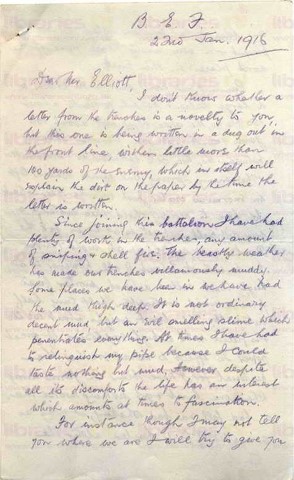 B E F
22nd Jan. 1916
Dear Mr. Elliott,
I don't know whether a
letter from the trenches is a novelty to you,
but this one is being written in a dug out in
the front line within little more than
100 yards of the enemy, which in itself will
explain the dirt on the paper by the time the
letter is written.
Since joining this battalion I have had
plenty of work in the trenches, any amount
of sniping & shell fire. The beastly weather
has made our trenches villainously muddy.
Some places we have been in we have had
the mud thigh deep. It is not ordinary
decent mud, but an evil smelling slime which
penetrates everything. At times I have had
to relinquish my pipe because I could
taste nothing but mud, however despite
all its discomforts the life has an interest
which amounts at times to fascination.
For instance though I may not tell
you where we are I will try to give you